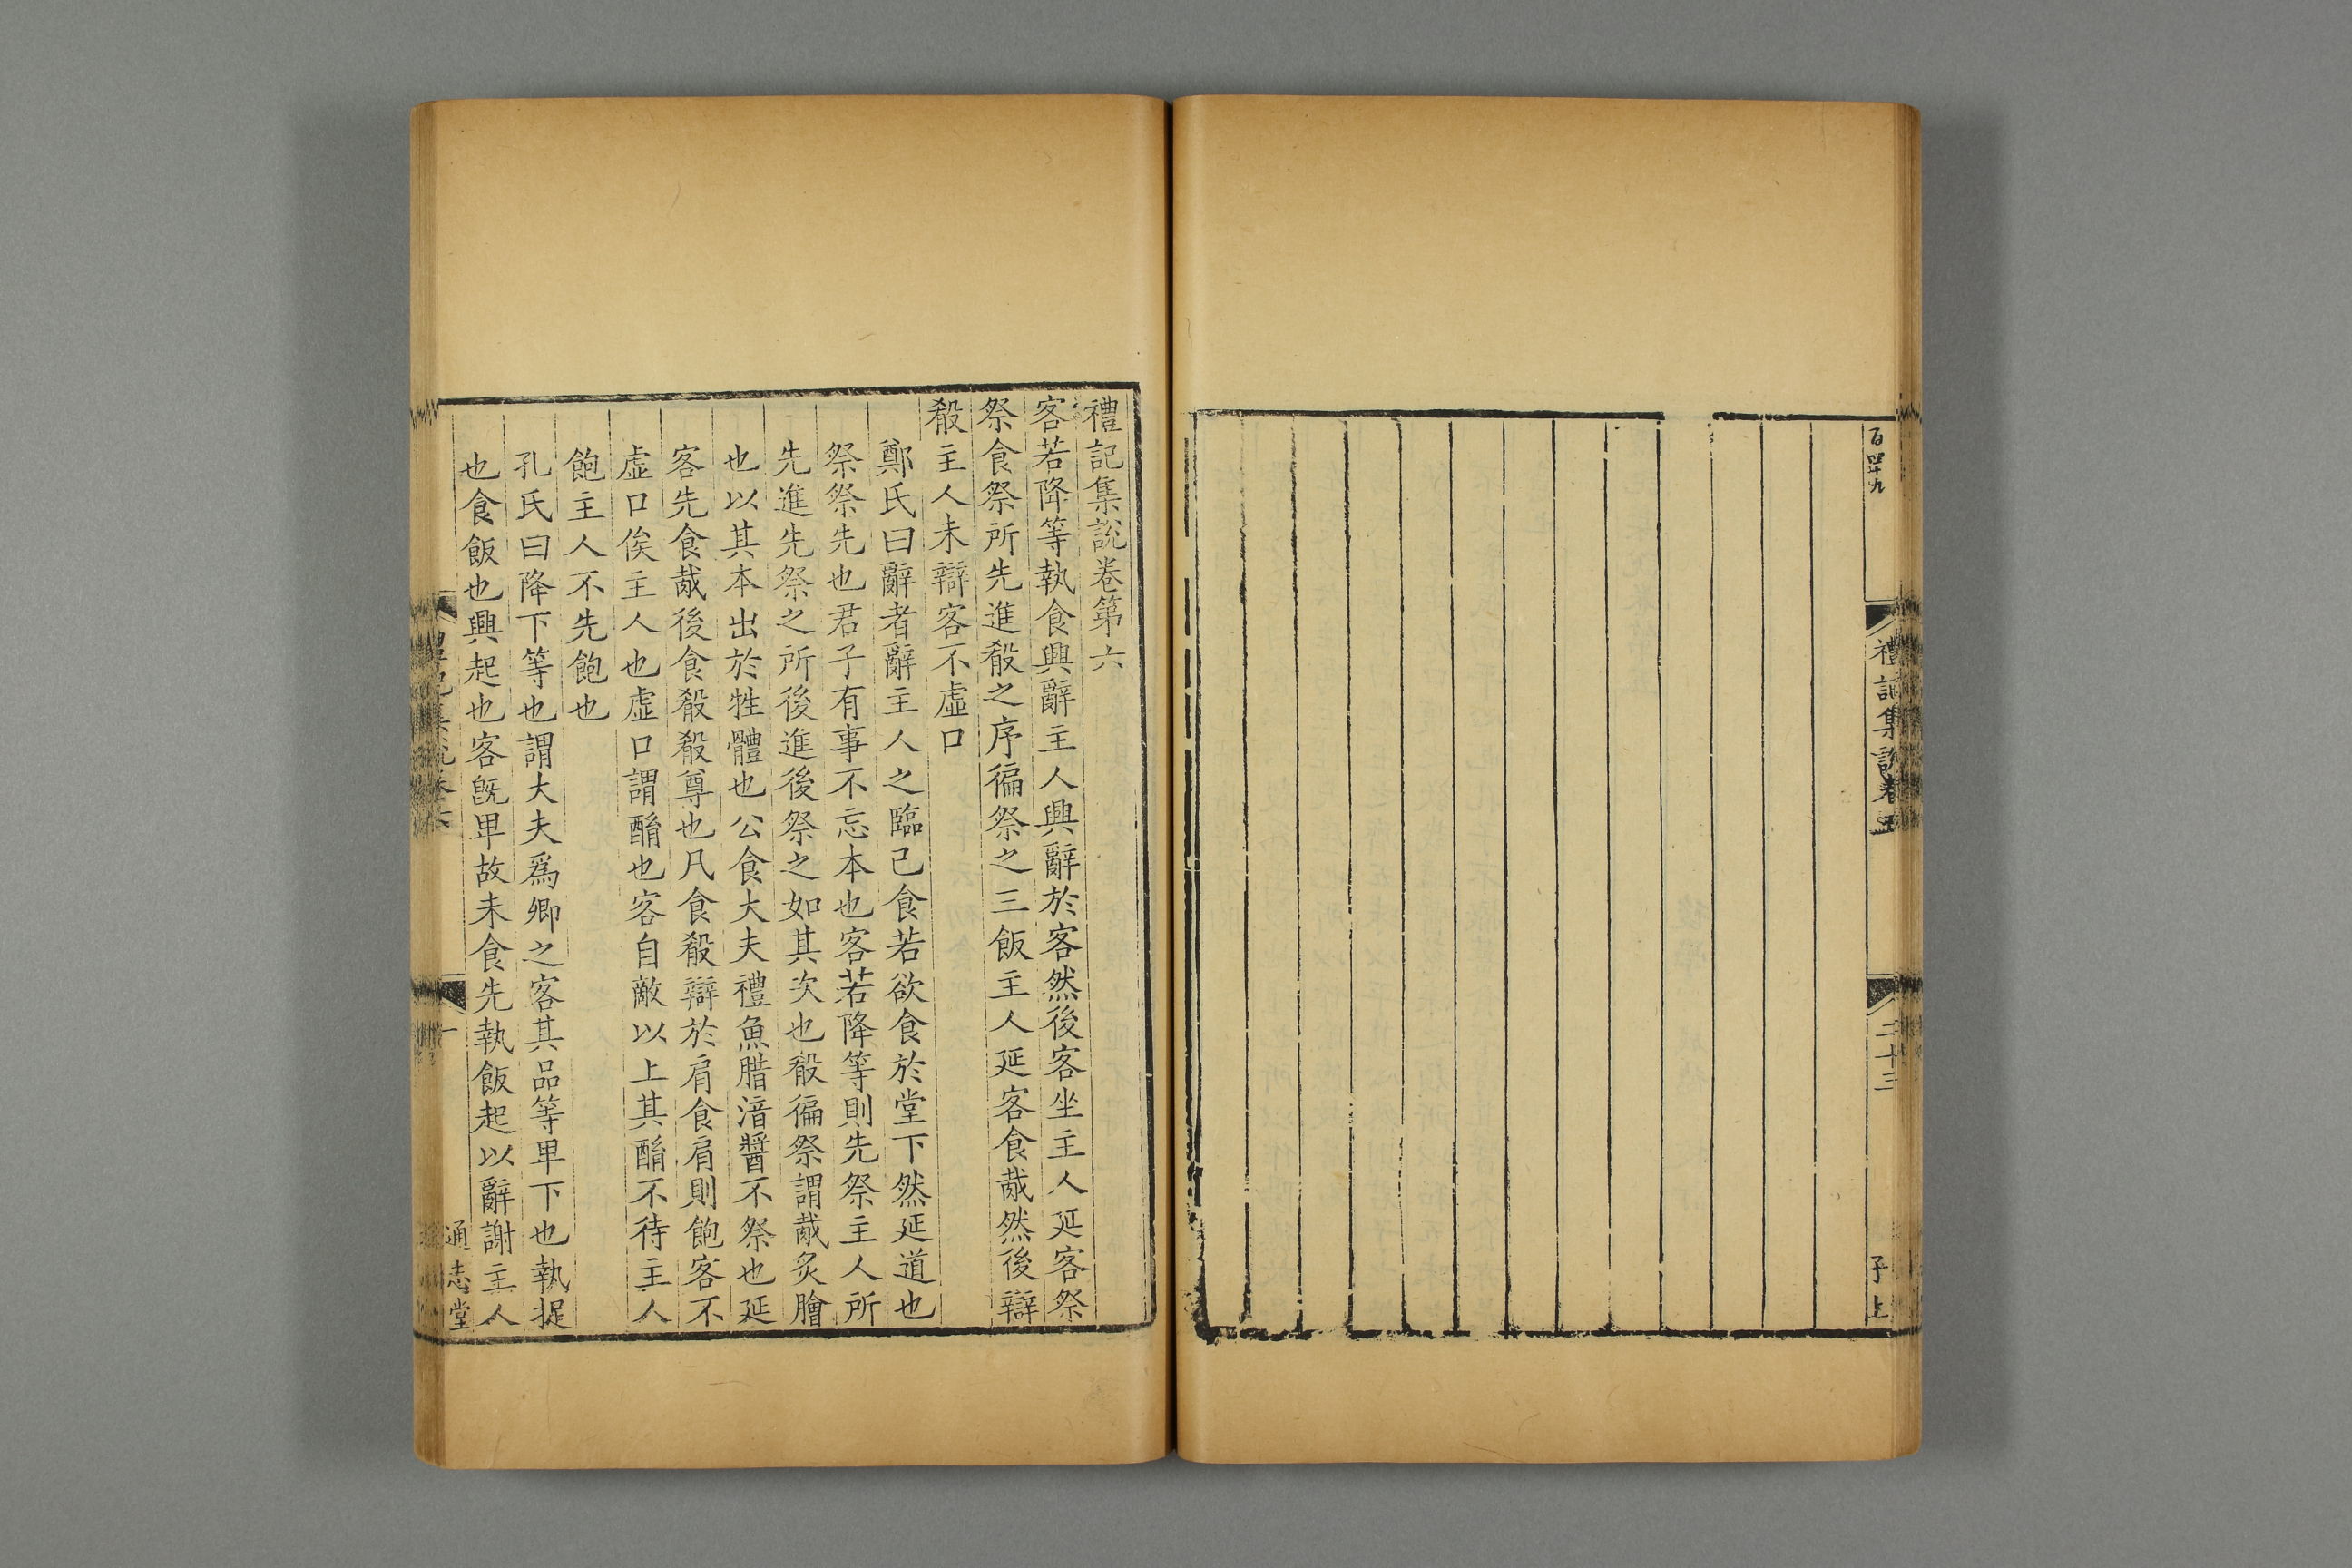 百四十九
禮記集說卷五
二十三
子上
禮記集說卷第六
客若降等執食興辭主人興辭於客然後客坐主人延客祭
祭食祭所先進殽之序徧祭之三飯主人延客食胾然後辯
殽主人未辯客不虛口
鄭氏曰辭者辭主人之臨己食若欲食於堂下然延道也
祭祭先也君子有事不忘本也客若降等則先祭主人所
先進先祭之所後進後祭之如其次也殽徧祭謂胾炙膾
也以其本出於牲體也公食大夫禮魚腊湆醬不祭也延
客先食胾後食殽殽尊也凡食殽辯於肩食肩則飽客不
虛口俟主人也虛口謂酳也客自敵以上其酳不待主人
飽主人不先飽也
孔氏曰降下等也謂大夫爲卿之客其品等卑下也執捉
也食飯也興起也客旣卑故未食先執飯起以辭謝主人
禮記集說卷六
一
通志堂